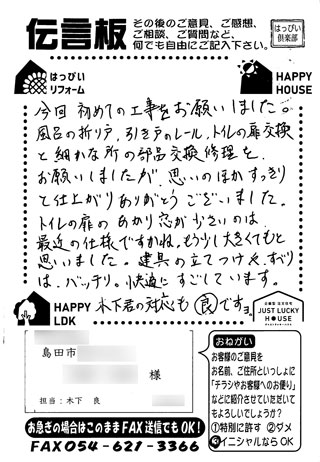 伝言板
その後のご意見、ご感想、
ご相談、ご質問など、
何でも自由にご記入下さい。
はっぴい
倶楽部
はっぴい
リフォーム
HAPPY
HOUSE
今回初めての工事をお願いしました。
風呂の折り戸、引き戸のレール、トイレの扉交換
と細かな所の部品交換修理を
お願いしましたが、思いのほかすっきり
と仕上がりありがとうございました。
トイレの扉のあかり窓が少さいのは
最近の仕様ですかね。もう少し大きくてもと
思いました。建具の立てつけ&すべり
は、バッチリ。快適にすごしています。
木下君の対応も良です。
HAPPY
LDK
JUST LUCKY
HOUSE
島田市
様
担当:木下 良
おねがい
お客様のご意見を
お名前、ご住所といっしょに
「チラシやお客様へのお便り」
などに紹介させていただいても
よろしいでしょうか?
①特別に許す ②ダメ
③イニシャルならOK
お急ぎの場合はこのままFAX送信でもOK!
FAX054-621-3366